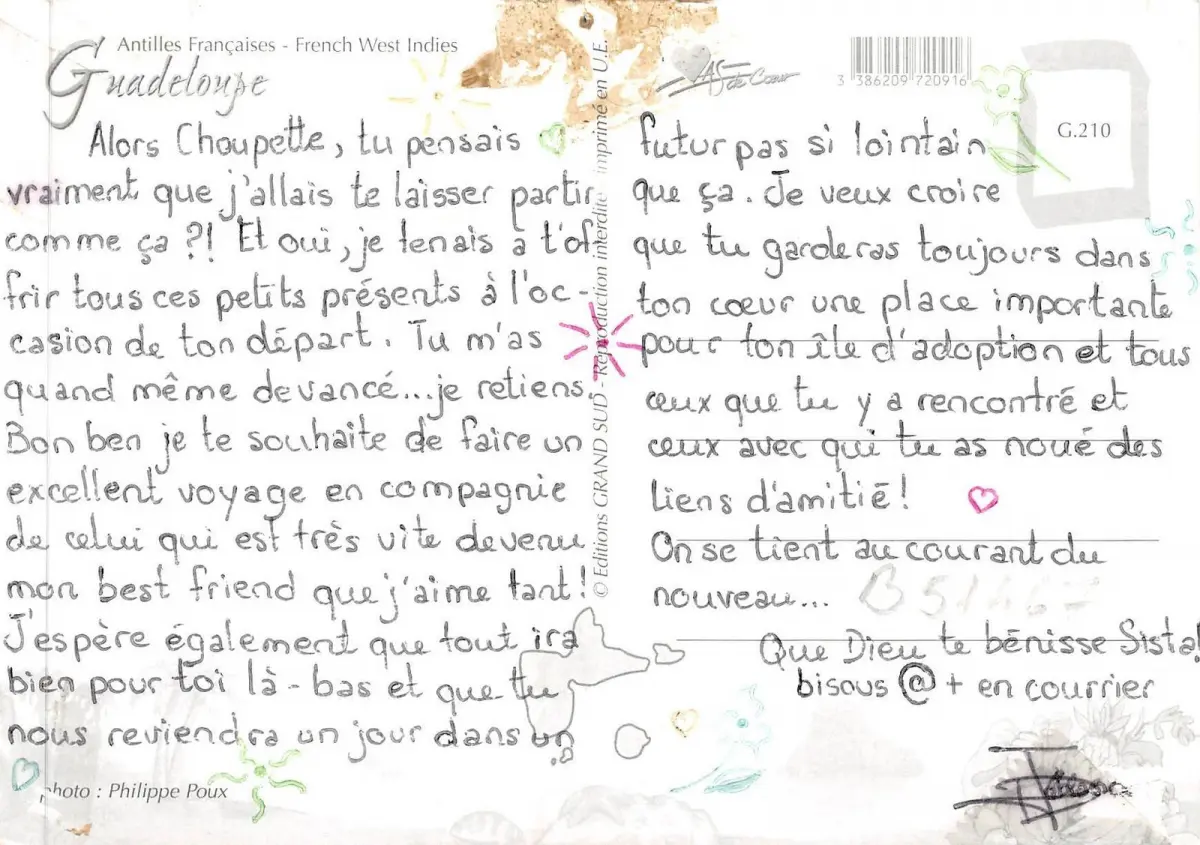 Antilles Françaises - French West Indies
Guadeloupe
Alors Choupette, tu pensais
vraiment que j'allais te laisser partir
comme ça ?! Et oui, je tenais à t'of-
frir tous ces petits présents à l'oc-
casion de ton départ. Tu m'as
quand même devancé...je retiens.
Bon ben je te souhaite de faire un
excellent voyage en compagnie
de celui qui est très vite devenu
mon best friend que j'aime tant!
J'espère également que tout ira
bien pour toi là-bas et que tu
nous reviendra un jour dans un
photo : Philippe Poux
© Editions GRAND SUD - Reproduction interdite imprimé en U.E.
AS de Cœur
3 386209 720916
G.210
futur pas si lointain
que ça. Je veux croire
que tu garderas toujours dans
ton cœur une place importante
pour ton île d'adoption et tous
ceux que tu y a rencontré et
ceux avec qui tu as noué des
liens d'amitié!
On se tient au courant du
nouveau...
Que Dieu te bénisse Sista!
bisous @ + en courrier